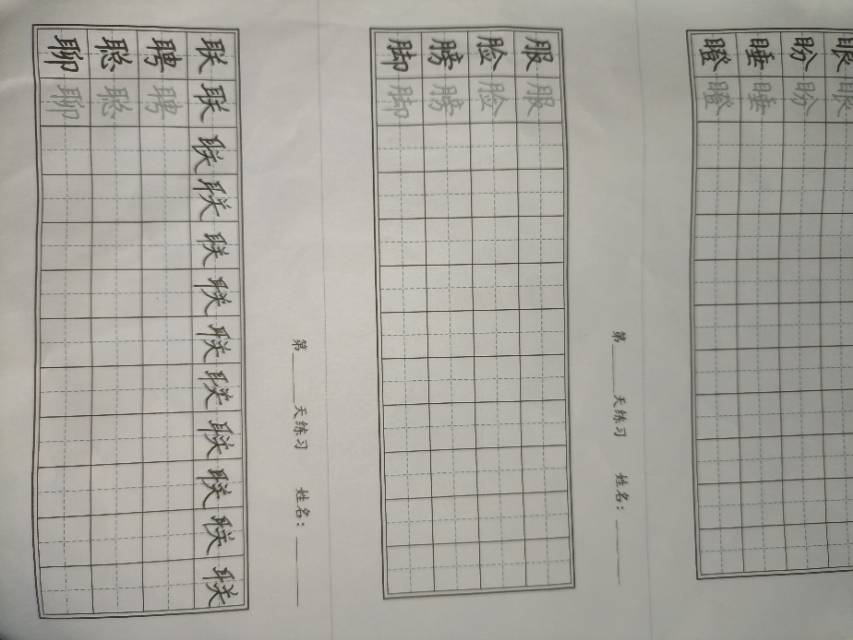 眼眼
盼盼
睡睡
瞪瞪
第____天练习 姓名：______
服服
脸脸
膀膀
脚脚
第____天练习 姓名：______
联联联联联联联联联联联联
聘聘
聪聪
聊聊